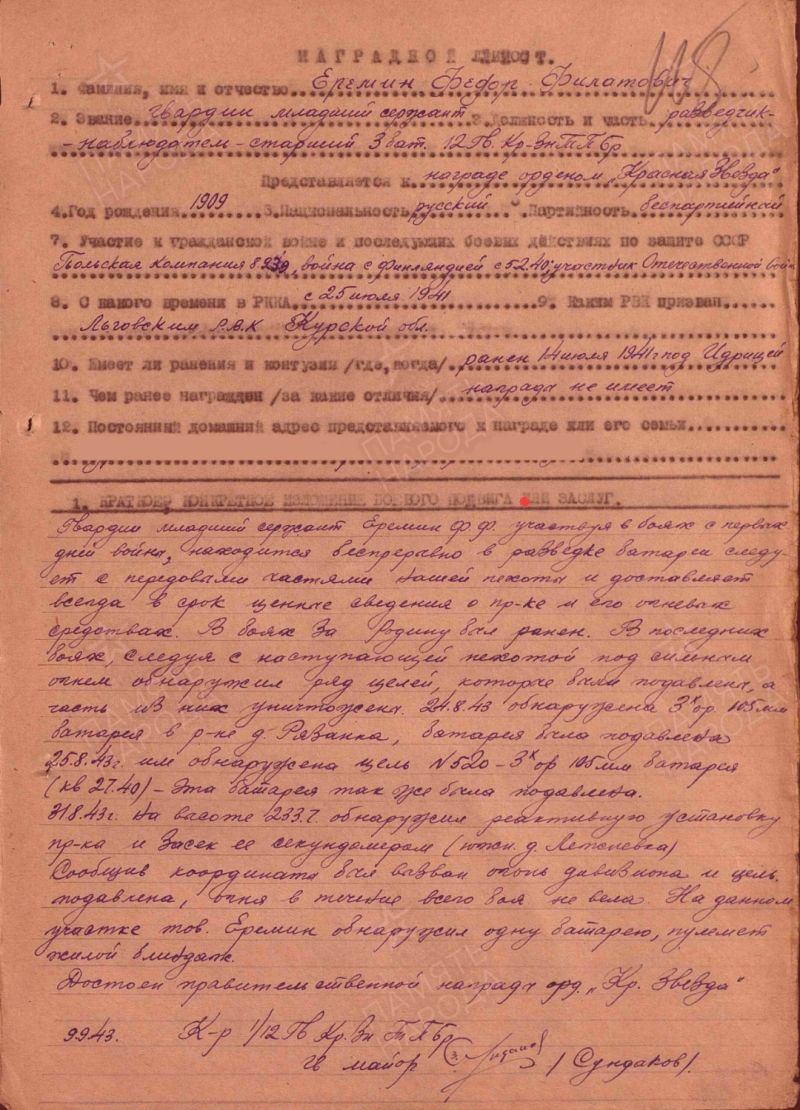 118
НАГРАДНОЙ ЛИСТ.
1. Фамилия, имя и отчество Еремин Федор Филатович
2. Звание гвардии младший сержант 3. Должность и часть разведчик-
-наблюдатель-старший 3 бат. 12 Гв. Кр-Зн ТПБр
Представляется к награде орденом „Красная Звезда"
4. Год рождения 1909 5. Национальность русский 6. Партийность беспартийный
7. Участие в гражданской войне и последующих боевых действиях по защите СССР
Польская компания 39, война с Финляндией с 5.2.40; участник Отечественной войн
8. С какого времени в РККА с 25 июля 1941 9. Каким РВК призван
Льговским РВК Курской обл.
10. Имеет ли ранения и контузии /где, когда/ ранен 14 июля 1941 г под Идрицей
11. Чем ранее награжден /за какие отличия/ наград не имеет
12. Постоянный домашний адрес представляемого к награде или его семьи
1. КРАТКОЕ, КОНКРЕТНОЕ ИЗЛОЖЕНИЕ БОЕВОГО ПОДВИГА ИЛИ ЗАСЛУГ.
Гвардии младший сержант Еремин Ф.Ф. участвуя в боях с первых
дней войны, находится беспрерывно в разведке батареи следу-
ет с передовыми частями нашей пехоты и доставляет
всегда в срок ценные сведения о пр-ке и его огневых
средствах. В боях за Родину был ранен. В последних
боях, следуя с наступающей пехотой под сильным
огнем обнаружил ряд целей, которые были подавлены, а
часть из них уничтожена. 24.8.43 обнаружена 3х ор. 105 мм
батарея в р-не д. Рязанка, батарея была подавлена
25.8.43 г. им обнаружена цель N 520 - 3х ор 105 мм батарея
(кв 27.40) - Эта батарея так же была подавлена.
31.8.43 г. на высоте 233.7. обнаружил реактивную установку
пр-ка и засек ее секундомером (южн. д.
Сообщив координаты был вызван огонь дивизиона и цель
подавлена, огня в течение всего боя не вела. На данном
участке тов. Еремин обнаружил одну батарею, пулемет
жилой блиндаж.
Достоен правительственной награды орд. „Кр. Звезда"
9.9.43. К-р 1/12 Гв Кр. Зн ТПБр
гв майор /Сундаков/.